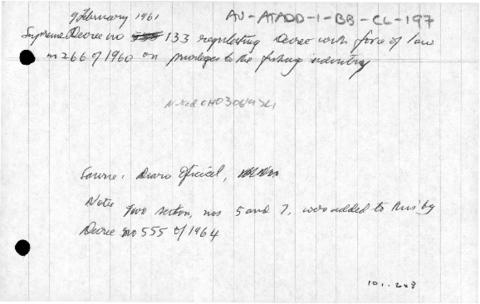 9 February 1961
AU-ATADD-1-BB-CL-197
Supreme Decree no 133 regulating Decree with force of law
no 266 of 1960 on privileges to the fishing industry
Source: Diario Oficial,
Note Two section, nos 5 and 7, were added to this by
Decree no 555 of 1964